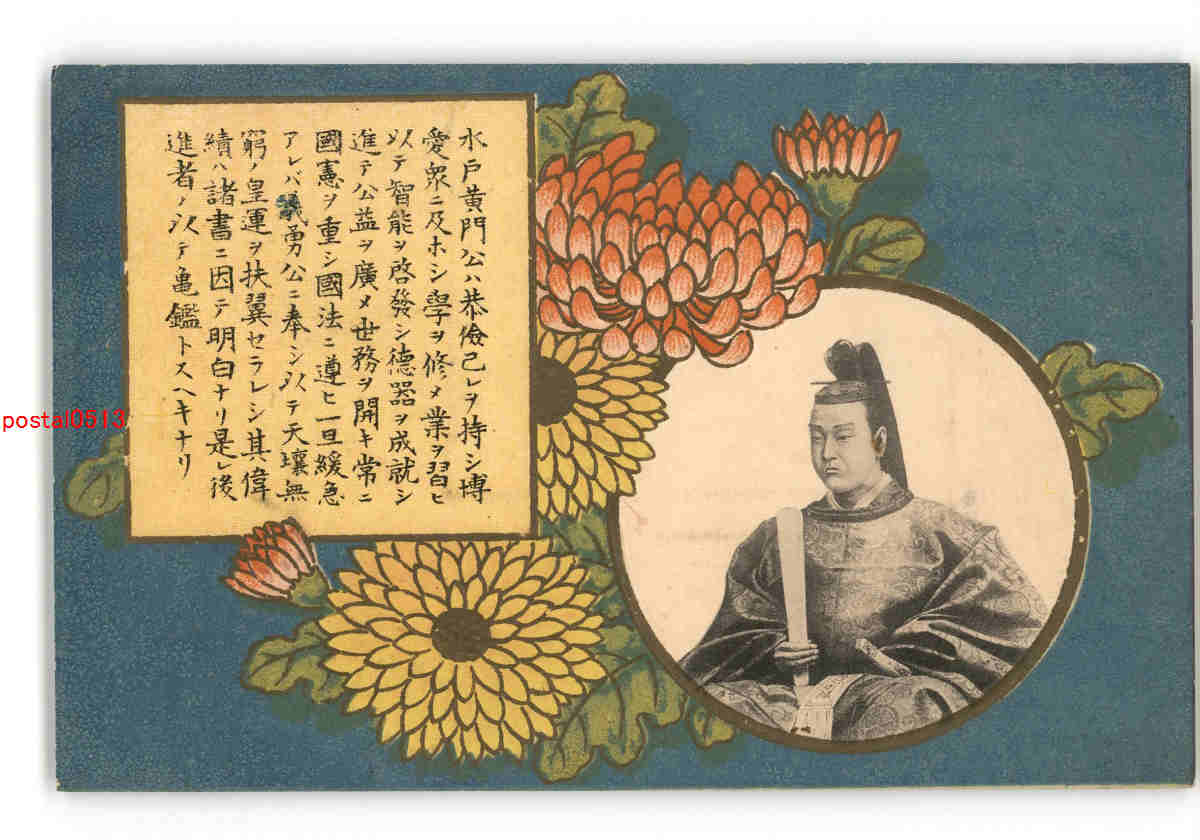 水戸黄門公ハ恭儉己レヲ持シ博
愛衆ニ及ホシ學ヲ修メ業ヲ習ヒ
以テ智能ヲ啓發シ德器ヲ成就シ
進テ公益ヲ廣メ世務ヲ開キ常ニ
國憲ヲ重シ國法ニ遵ヒ一旦緩急
アレバ義勇公ニ奉シ以テ天壤無
窮ノ皇運ヲ扶翼セラレシ其偉
績ハ諸書ニ因テ明白ナリ是レ後
進者ノ以テ亀鑑トスヘキナリ
postal0513